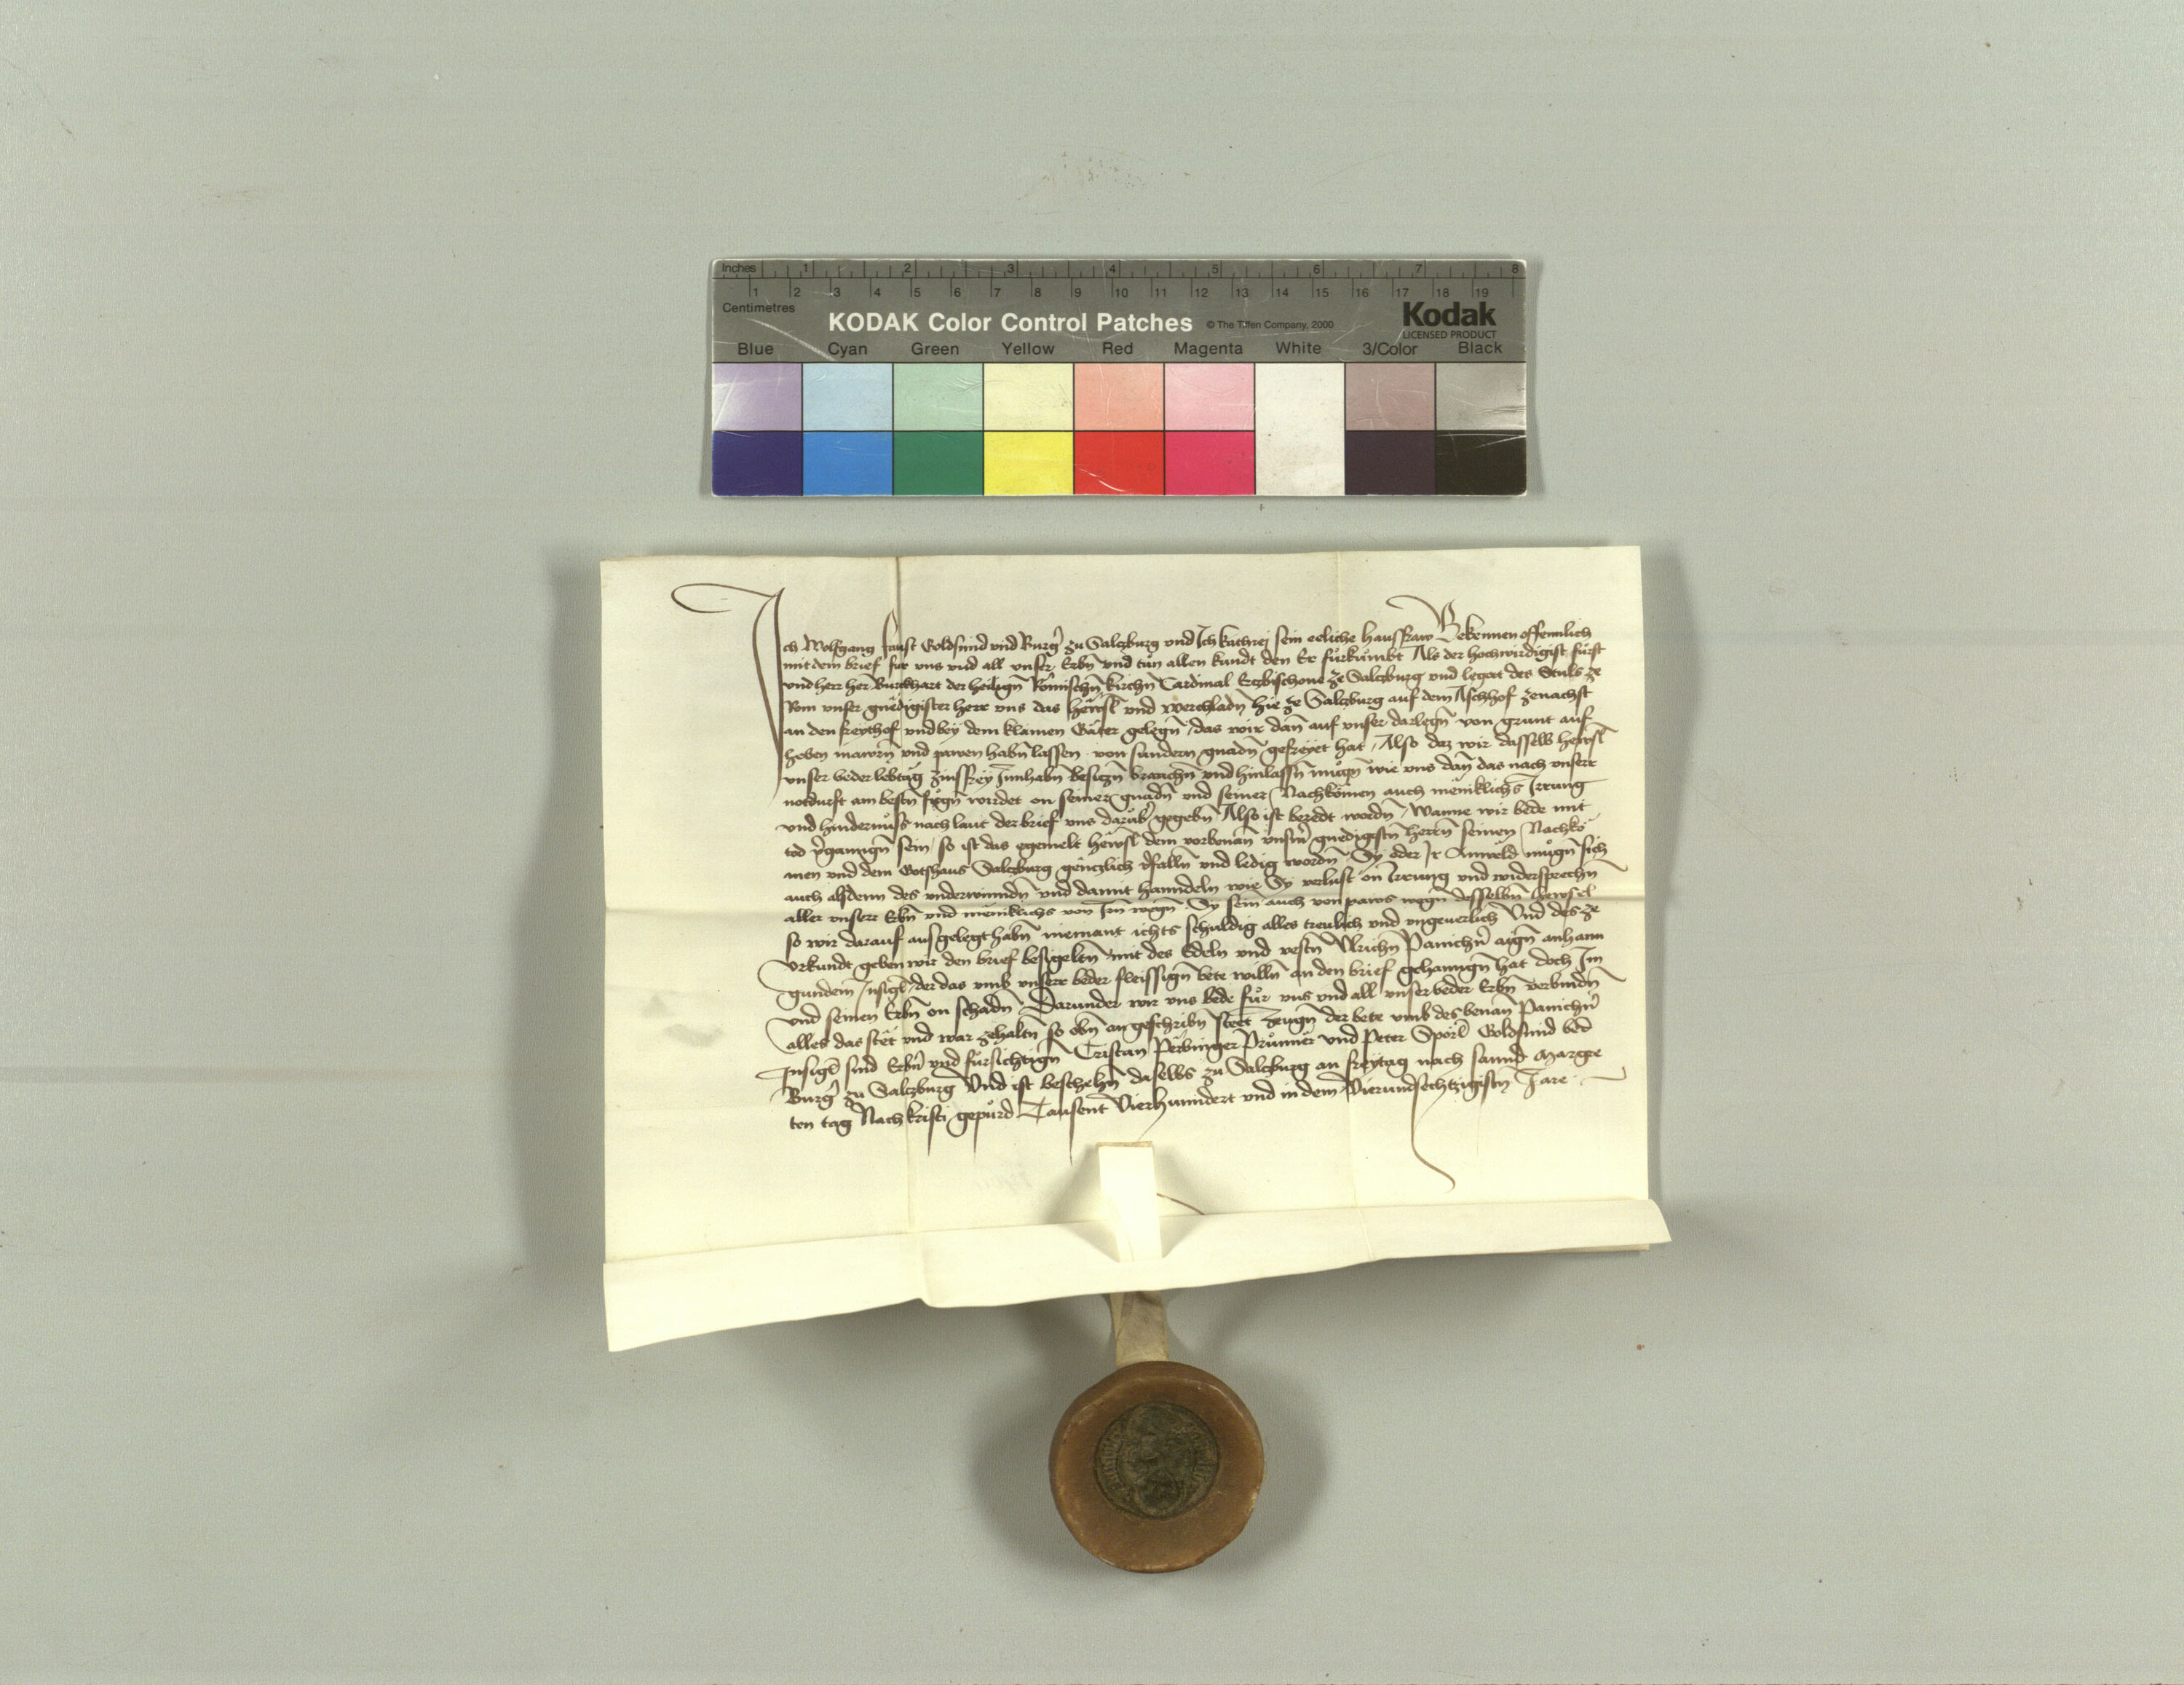 Inches 1 2 3 4 5 6 7 8
1 2 3 4 5 6 7 8 9 10 11 12 13 14 15 16 17 18 19
Centimetres
KODAK Color Control Patches © The Tiffen Company, 2000 Kodak
LICENSED PRODUCT
Blue Cyan Green Yellow Red Magenta White 3/Color Black
Ich Wolfgang Faust Goldsmid vnd Burg̉ zu Salczburg vnd Ich kathrej sein eeliche hausfraw Bekennen offennlich
mit dem brief fur vns vnd all vnser Erbn̄ vnd tůn allen kundt den Er fůrkůmbt Als der hochwirdigist fůrst
vnd herr her Burckhart der heilign̄ Rŏmischn̄ kirchn̄ Cardinal Erczbischoue ze Salczburg vnd legat des Stuls ze
Rom vnser gnĕdigister herr vns das hĕwsl vnd werchladn̄ hie ze Salczburg auf dem Aschhof zenachst
an den freythof vnd bey dem klainen Gåter gelegn̄ / das wir dan̄ auf vnser darlegn̄ von grunt auf
heben mawrn̄ vnd pawen habn̄ lassen von sundern gnadn̄ gefreyet hat / Also daz wir dasselb hewsl
vnser beder lebtåg zinsfrey Innhabn̄ besiczn̄ brauchn̄ vnd hinlassn̄ můgn̄ wie vns dan̄ das nach vnserr
notdurft am bestn̄ fůgn̄ wirdet on seiner gnadn̄ vnd seiner Nachkŏmen auch meniklichs Irrung
vnd hindernůss nach laut der brief vns darůb̉ gegebn̄ Also ist beredt wordn̄ / Wanne wir bede mit
tod v̉ganngn̄ sein / so ist das egemelt hĕwsl dem vorbenan̄ vnsrm̉ gnedigistn̄ herrn̄ seinen Nachkŏ
men vnd dem Gotshaus Salczburg gĕnczlich v̉falln̄ vnd ledig wordn̄ Sy oder Ir Anwĕld můgn̄ sich
auch alsdenn des vnderwinndn̄ vnd damit hanndeln wie Sy verlust on Irrung vnd widersprechn̄
aller vnserr Erbn̄ vnd meniklichs von Irn wegn̄. Sy sein auch von paws wegn̄ desselbn̄ hewsel
so wir darauf ausgelegt habn̄ niemant ichts schuldig alles treulich vnd vngeuerlich Vnd des ze
vrkundt geben wir den brief besigeltn̄ mit des Edeln vnd vestn̄ Vlrichn̄ Panichn̉ aign̄ anhann
gundem Insigl̄ / der das vmb vnserr beder fleissign̄ bete willn̄ an den brief gehanngn̄ hat doch Im
vnd seinen Erbn̄ on schadn̄ Darunder wir vns bede fůr vns vnd all vnser beder Erbn̄ verbindn̄
alles das stĕt vnd war zehaltn̄ so obn̄ an geschribn̄ steet zeugn̄ der bete vmb des benan̄ Panichn̉
Insigl̄ sind Erbn̉ vnd fůrsichtign̄ Cristan Perbinger Průnner vnd Peter Spŏrl̄ Goldsmid bed
Burg̉ zu Salczburg Vnd ist beschehn̄ daselbs zu Salczburg an freytag nach sannd Margre
ten tag Nach kristi gepůrd Tausent Vierhunndert vnd in dem Vierundsechtzigistn̄ Jare